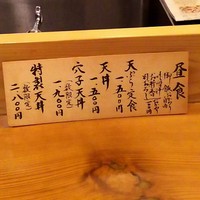 昼食
天ぷら定食
一、五〇〇
天丼
一、五〇〇
穴子天丼
(数限定)
一、九〇〇
特製天丼
(数限定)
二、八〇〇円